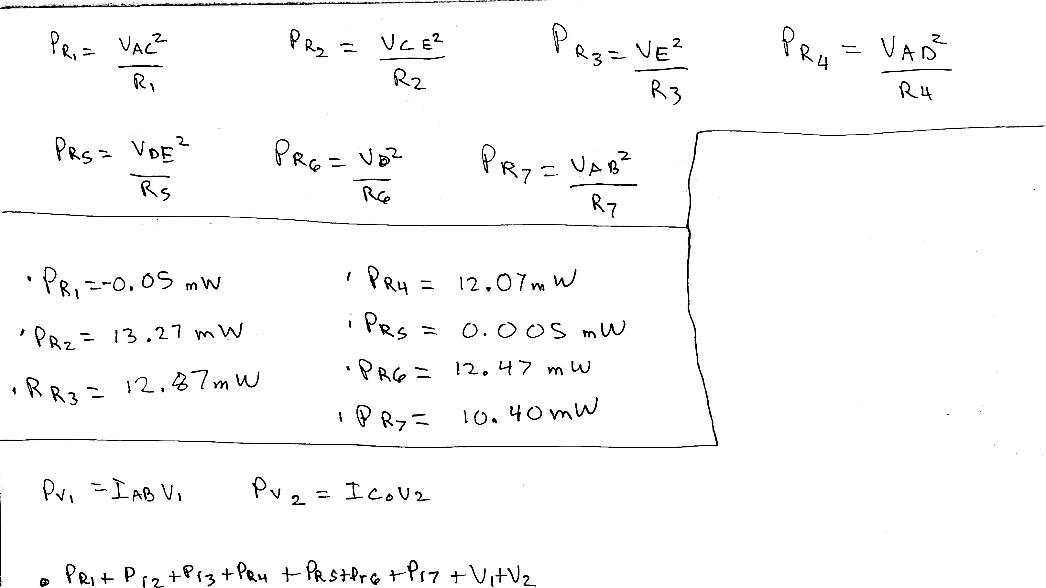 PR1 = VAC² / R1    PR2 = VCE² / R2    PR3 = VE² / R3    PR4 = VAD² / R4
PR5 = VDE² / R5    PR6 = VD² / R6    PR7 = VAB² / R7
· PR1 = -0.05 mW    · PR4 = 12.07 mW
· PR2 = 13.27 mW    · PR5 = 0.005 mW
· RR3 = 12.87 mW    · PR6 = 12.47 mW
· PR7 = 10.40 mW
PV1 = IAB V1    PV2 = ICOV2
• PR1 + Pr2 + Pr3 + PR4 + PR5 + Pr6 + Pr7 + V1 + V2